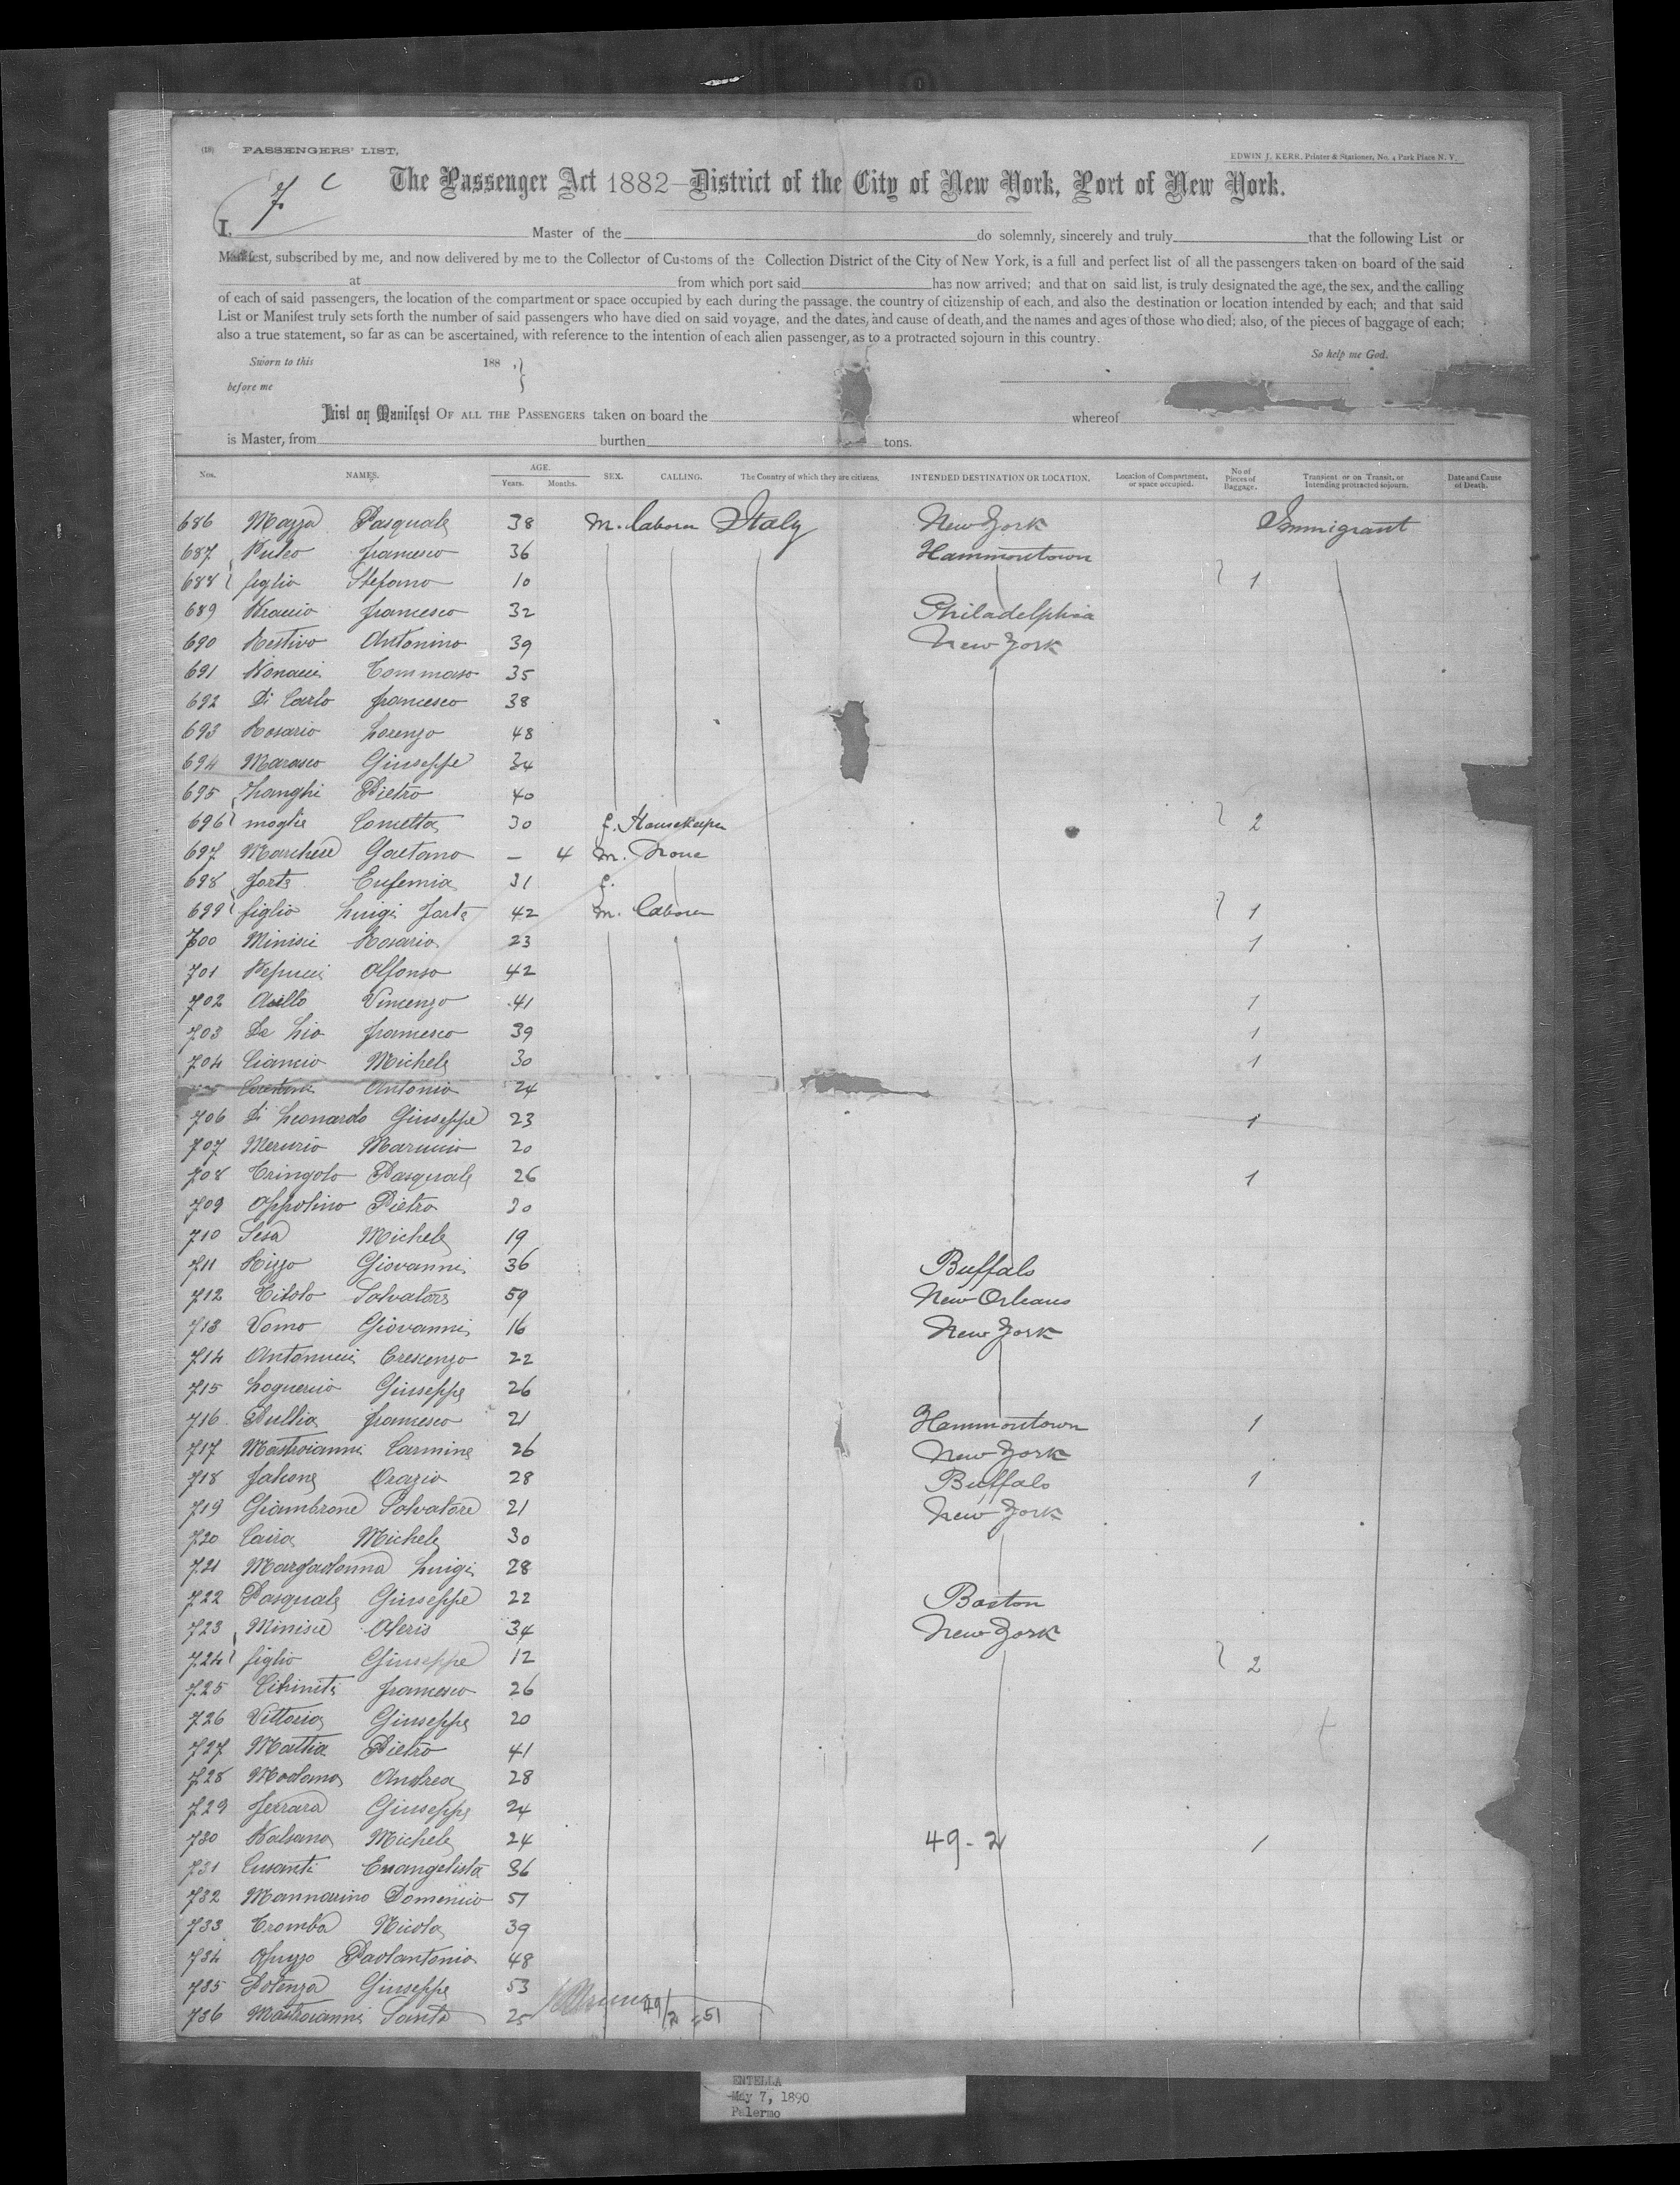 (18) PASSENGERS' LIST,
EDWIN J. KERR, Printer & Stationer, No. 4 Park Place N. Y.
7 C
The Passenger Act 1882—District of the City of New York, Port of New York.
I, Master of the do solemnly, sincerely and truly that the following List or
Manifest, subscribed by me, and now delivered by me to the Collector of Customs of the Collection District of the City of New York, is a full and perfect list of all the passengers taken on board of the said
at from which port said has now arrived; and that on said list, is truly designated the age, the sex, and the calling
of each of said passengers, the location of the compartment or space occupied by each during the passage, the country of citizenship of each, and also the destination or location intended by each; and that said
List or Manifest truly sets forth the number of said passengers who have died on said voyage, and the dates, and cause of death, and the names and ages of those who died; also, of the pieces of baggage of each;
also a true statement, so far as can be ascertained, with reference to the intention of each alien passenger, as to a protracted sojourn in this country.
Sworn to this 188 , } So help me God.
before me
List or Manifest OF ALL THE PASSENGERS taken on board the whereof
is Master, from burthen tons.
Nos. NAMES. AGE. Years. Months. SEX. CALLING. The Country of which they are citizens. INTENDED DESTINATION OR LOCATION. Location of Compartment, or space occupied. No of Pieces of Baggage. Transient or on Transit, or Intending protracted sojourn. Date and Cause of Death.
686 Mazza Pasquale 38 m. laborer Italy New York Immigrant
687 Puleo francesco 36 Hammontown
688 figlio Stefano 10 1
689 francesco 32 Philadelphia
690 Restivo Antonino 39 New York
691 Tommaso 35
692 Di Carlo francesco 38
693 Rosario Lorenzo 48
694 Marasco Giuseppe 34
695 Zhanghi Pietro 40
696 moglie Cometta 30 f. Housekeeper 2
697 Marchese Gaetano — 4 m. None
698 Jorte Eufemia 31 f.
699 figlio Luigi Jorte 42 m. laborer 1
700 Minisci Rosario 23 1
701 Alfonso 42
702 Aiello Vincenzo 41 1
703 De Lio francesco 39 1
704 Ciancio Michele 30 1
Antonio 24
706 Di Leonardo Giuseppe 23 1
707 Mercurio Maruccio 20
708 Tringolo Pasquale 26 1
709 Appolino Pietro 30
710 Sesa Michele 19
711 Rizzo Giovanni 36 Buffalo
712 Titolo Salvatore 59 New Orleans
713 Vomo Giovanni 16 New York
714 Antonucci Crescenzo 22
715 Loguercio Giuseppe 26
716 Pullia francesco 21 Hammontown 1
717 Mastroianni Carmine 26 New York
718 Falcone Orazio 28 Buffalo 1
719 Giambrone Salvatore 21 New York
720 Caira Michele 30
721 Margadonna Luigi 28
722 Pasquale Giuseppe 22 Boston
723 Minisci 34 New York
724 figlio Giuseppe 12 2
725 Citiniti francesco 26
726 Vittoria Giuseppe 20
727 Mattia Pietro 41
728 Modana Andrea 28
729 Ferrara Giuseppe 24
730 Michele 24 49-2 1
731 Cusanti Evangelista 36
732 Mannarino Domenico 51
733 Tromba Nicola 39
734 Apuzzo Paolantonio 48
735 Potenza Giuseppe 53
736 Mastroianni Santo 25 49/2 =51
ENTELLA
May 7, 1890
Palermo